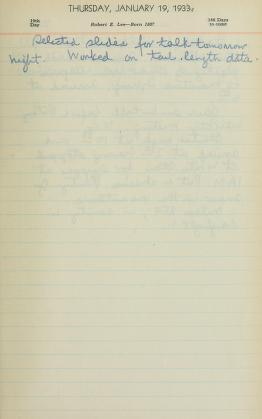 THURSDAY, JANUARY 19, 1933
19th Day
Robert E. Lee—Born 1807
346 Days to come
Selected slides for talk tomorrow
night. Worked on tail length data.